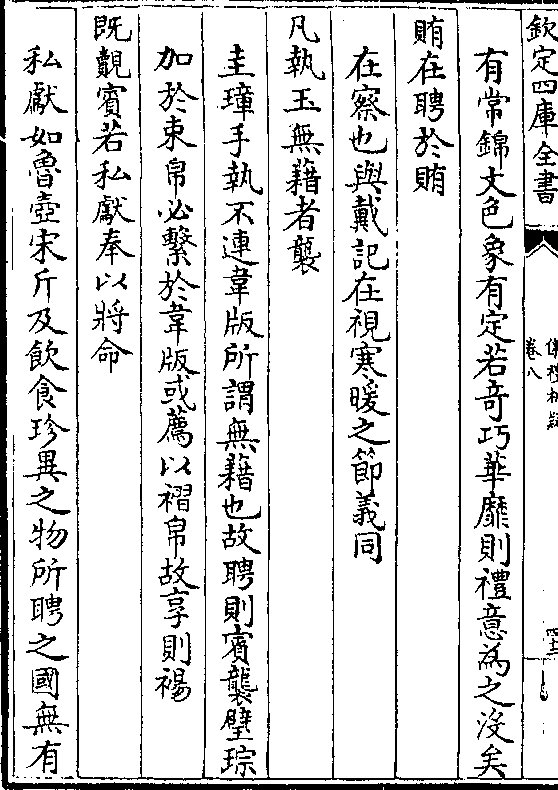 欽定四庫全書
儀禮析疑
卷八
有常錦文色象有定若奇巧華靡則禮意為之沒矣
賄在聘於賄
在察也與戴記在視寒暖之節義同
凡執玉無藉者襲
圭璋手執不連韋版所謂無藉也故聘則賓襲璧琮
加於束帛必繫於韋版或薦以褶帛故享則裼
既覿賓若私獻奉以將命
私獻如魯壺宋斤及飲食珍異之物所聘之國無有